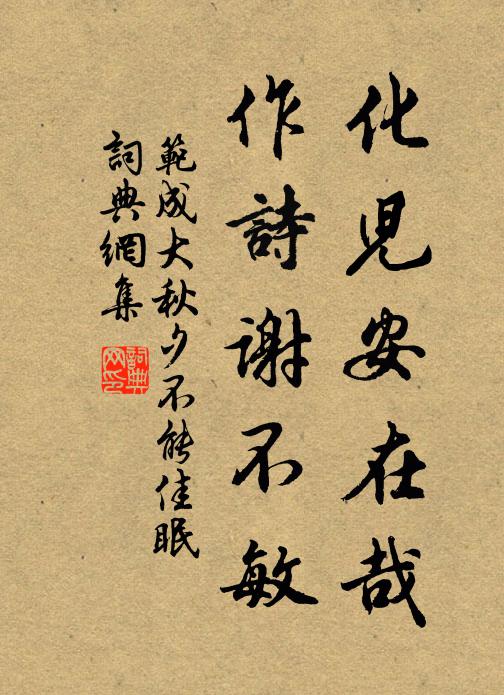 化児安在哉
作詩謝不敏
範成大秋夕不能佳眠
詞典網集
詞典
网印